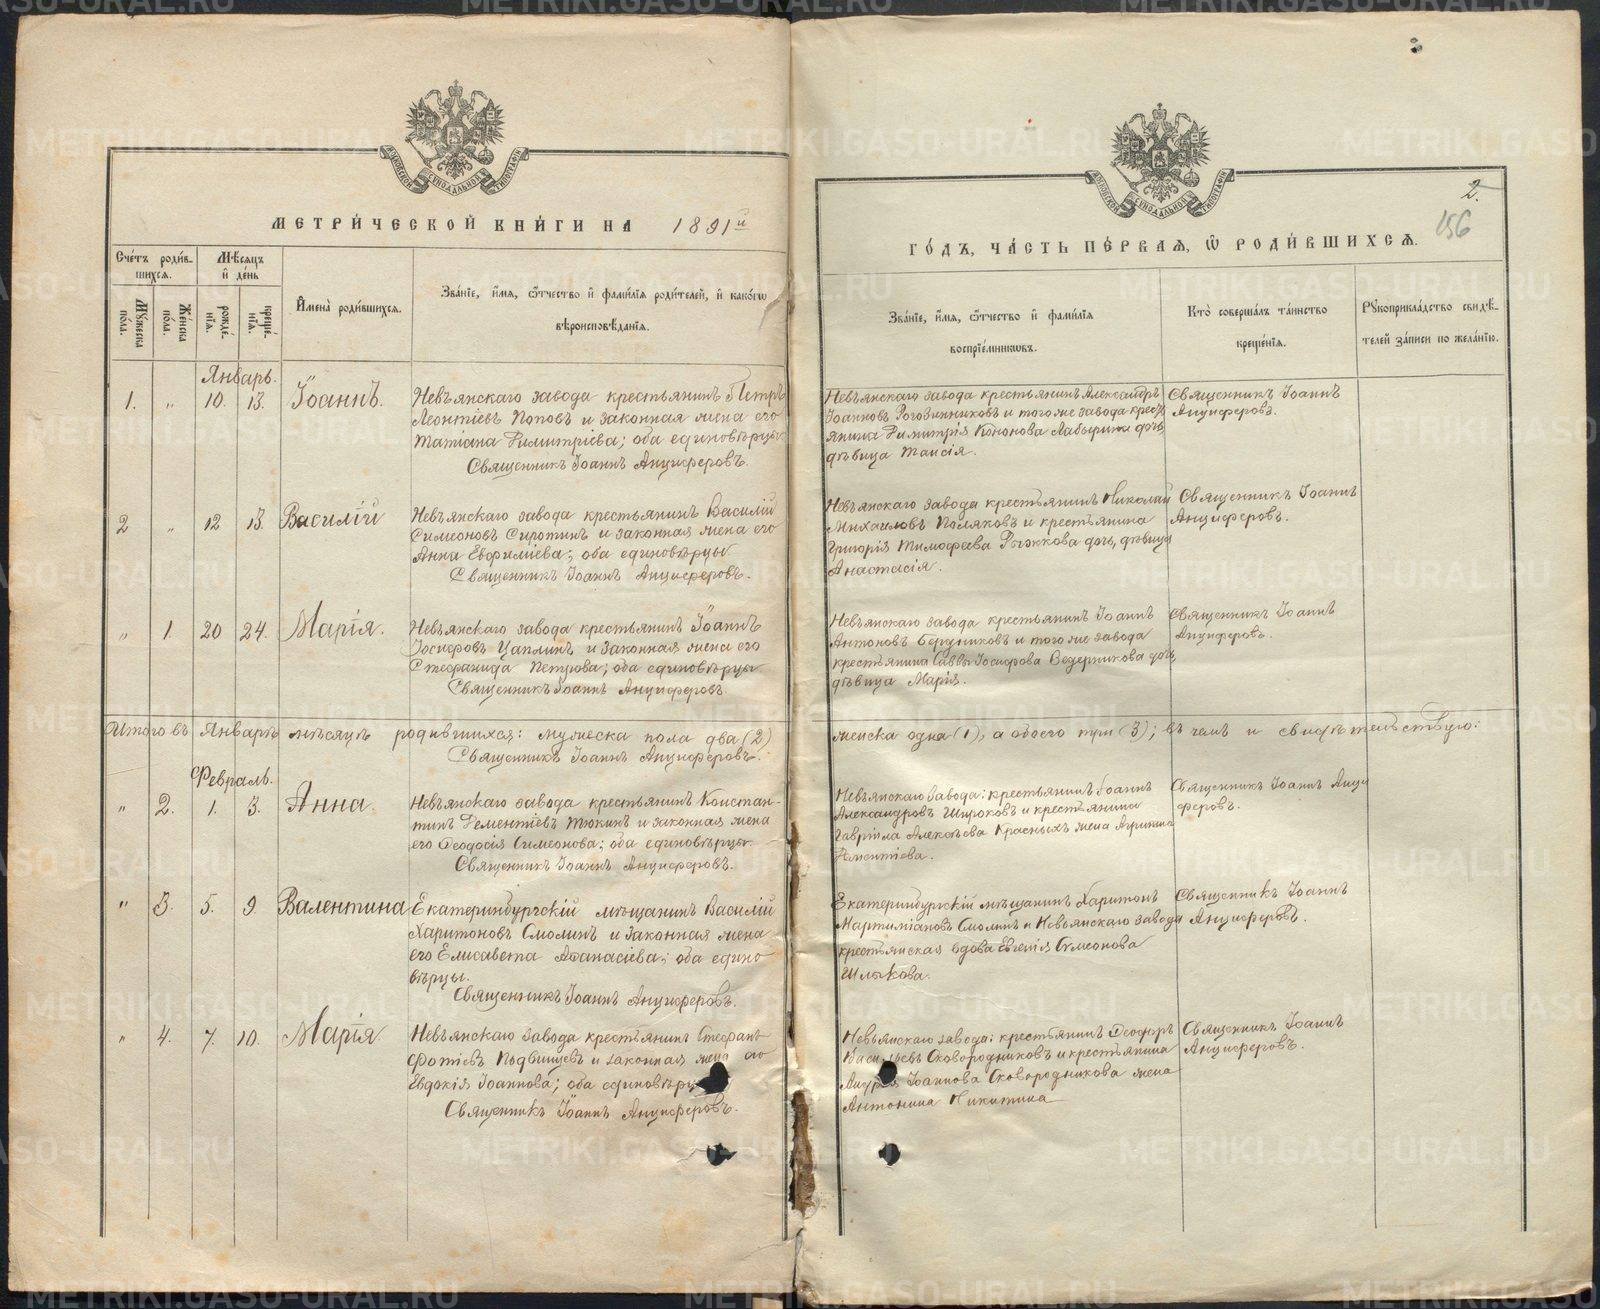 МОСКОВСКОЙ СѴНОДАЛЬНОЙ ТИПОГРАФІИ
МЕТРИ́ЧЕСКОЙ КНИ́ГИ НА 1891й
Сче́тъ роди́в-
шихся.
Мѣ́сяцъ
и҆ де́нь
Мꙋ́жеска по́ла.
Же́нска по́ла.
рожде́-
нїѧ.
креще́-
нїѧ.
И҆мена̀ роди́вшихся.
Зва́нїе, и҆́мѧ, ѻ҆́тчество и҆ фами́лїѧ роди́телей, и҆ како́гѡ
вѣроисповѣ́данїѧ.
Январь.
1. „ 10. 13. Іоаннъ. Невьянскаго завода крестьянинъ Петръ
Леонтіевъ Поповъ и законная жена его
Татіана Димитріева; оба единовѣрцы.
Священникъ Іоаннъ Анциферовъ.
2 „ 12 13. Василій Невьянскаго завода крестьянинъ Василій
Симеоновъ Сиротинъ и законная жена его
Анна Евфиміева; оба единовѣрцы
Священникъ Іоаннъ Анциферовъ.
„ 1. 20 24. Марія. Невьянскаго завода крестьянинъ Іоаннъ
Іосифовъ Цаплинъ и законная жена его
Стефанида Петрова; оба единовѣрцы
Священникъ Іоаннъ Анциферовъ.
Итого въ Январѣ мѣсяцѣ родившихся: мужеска пола два (2)
Священникъ Іоаннъ Анциферовъ.
Февраль.
„ 2. 1. 3. Анна. Невьянскаго завода крестьянинъ Констан-
тинъ Дементіевъ Тюкинъ и законная жена
его Ѳеодосія Симеонова; оба единовѣрцы.
Священникъ Іоаннъ Анциферовъ.
„ 3. 5. 9. Валентина Екатеринбургскій мѣщанинъ Василій
Харитоновъ Смолинъ и законная жена
его Елисавета Аѳанасіева; оба едино-
вѣрцы.
Священникъ Іоаннъ Анциферовъ.
„ 4. 7. 10. Марія Невьянскаго завода крестьянинъ Стефанъ
Фотіевъ Подвинцевъ и законная жена его
Евдокія Іоаннова; оба единовѣр
Священникъ Іоаннъ Анциферовъ.
2.
156
МОСКОВСКОЙ СѴНОДАЛЬНОЙ ТИПОГРАФІИ
ГО́ДЪ, ЧА́СТЬ ПЕ́РВАЯ, Ѽ РОДИ́ВШИХСЯ.
Зва́нїе, и҆́мѧ, ѻ҆́тчество и҆ фами́лїѧ
воспрїе́мниковъ.
Кто̀ соверша́лъ та́инство
креще́нїѧ.
Рꙋкоприкла́дство свидѣ́-
телей за́писи по жела́нїю.
Невьянскаго завода крестьянинъ Александръ
Іоанновъ Рогозинниковъ и того же завода крест-
янина Димитрія Кононова Лабырина дочь,
дѣвица Таисія.
Священникъ Іоаннъ
Анциферовъ.
Невьянскаго завода крестьянинъ Николай
Михаиловъ Поляковъ и крестьянина
Григорія Тимофеева Рыжкова дочь, дѣвица
Анастасія.
Священникъ Іоаннъ
Анциферовъ.
Невьянскаго завода крестьянинъ Іоаннъ
Антоновъ Бердниковъ и того же завода
крестьянина Саввы Іосифова Ведерникова дочь
дѣвица Марія.
Священникъ Іоаннъ
Анциферовъ.
женска одна (1), а обоего три (3); въ чемъ и свидѣтельствую:
Невьянскаго завода: крестьянинъ Іоаннъ
Александровъ Широковъ и крестьянина
Гавріила Алексѣева Красныхъ жена Агрипина
Дементіева.
Священникъ Іоаннъ Анци
феровъ.
Екатеринбургскій мѣщанинъ Харитонъ
Мартиніановъ Смолинъ и Невьянскаго завода
крестьянская вдова Евгенія Симеонова
Шлыкова.
Священникъ Іоаннъ
Анциферовъ.
Невьянскаго завода: крестьянинъ Ѳеодоръ
Васильевъ Сковородниковъ и крестьянина
Андрея Іоаннова Сковородникова жена
Антонина Никитина
Священникъ Іоаннъ
Анциферовъ.
METRIKI.GASO-URAL.RU